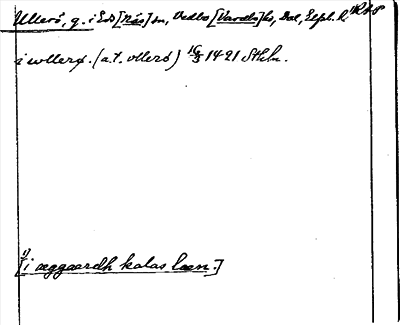 Ullerö, g. i Ed [Näs] sn, Vedbo [Vardbo] hd, Dal, Elfsb. l. 1) RAP
i wllerø. (a.t. vllerö) 16/3 1421 Sthlm.
1)
[i æggaardh kalas læn.]